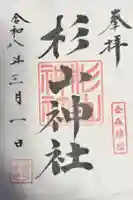 奉拝
杉山神社
令和八年三月一日